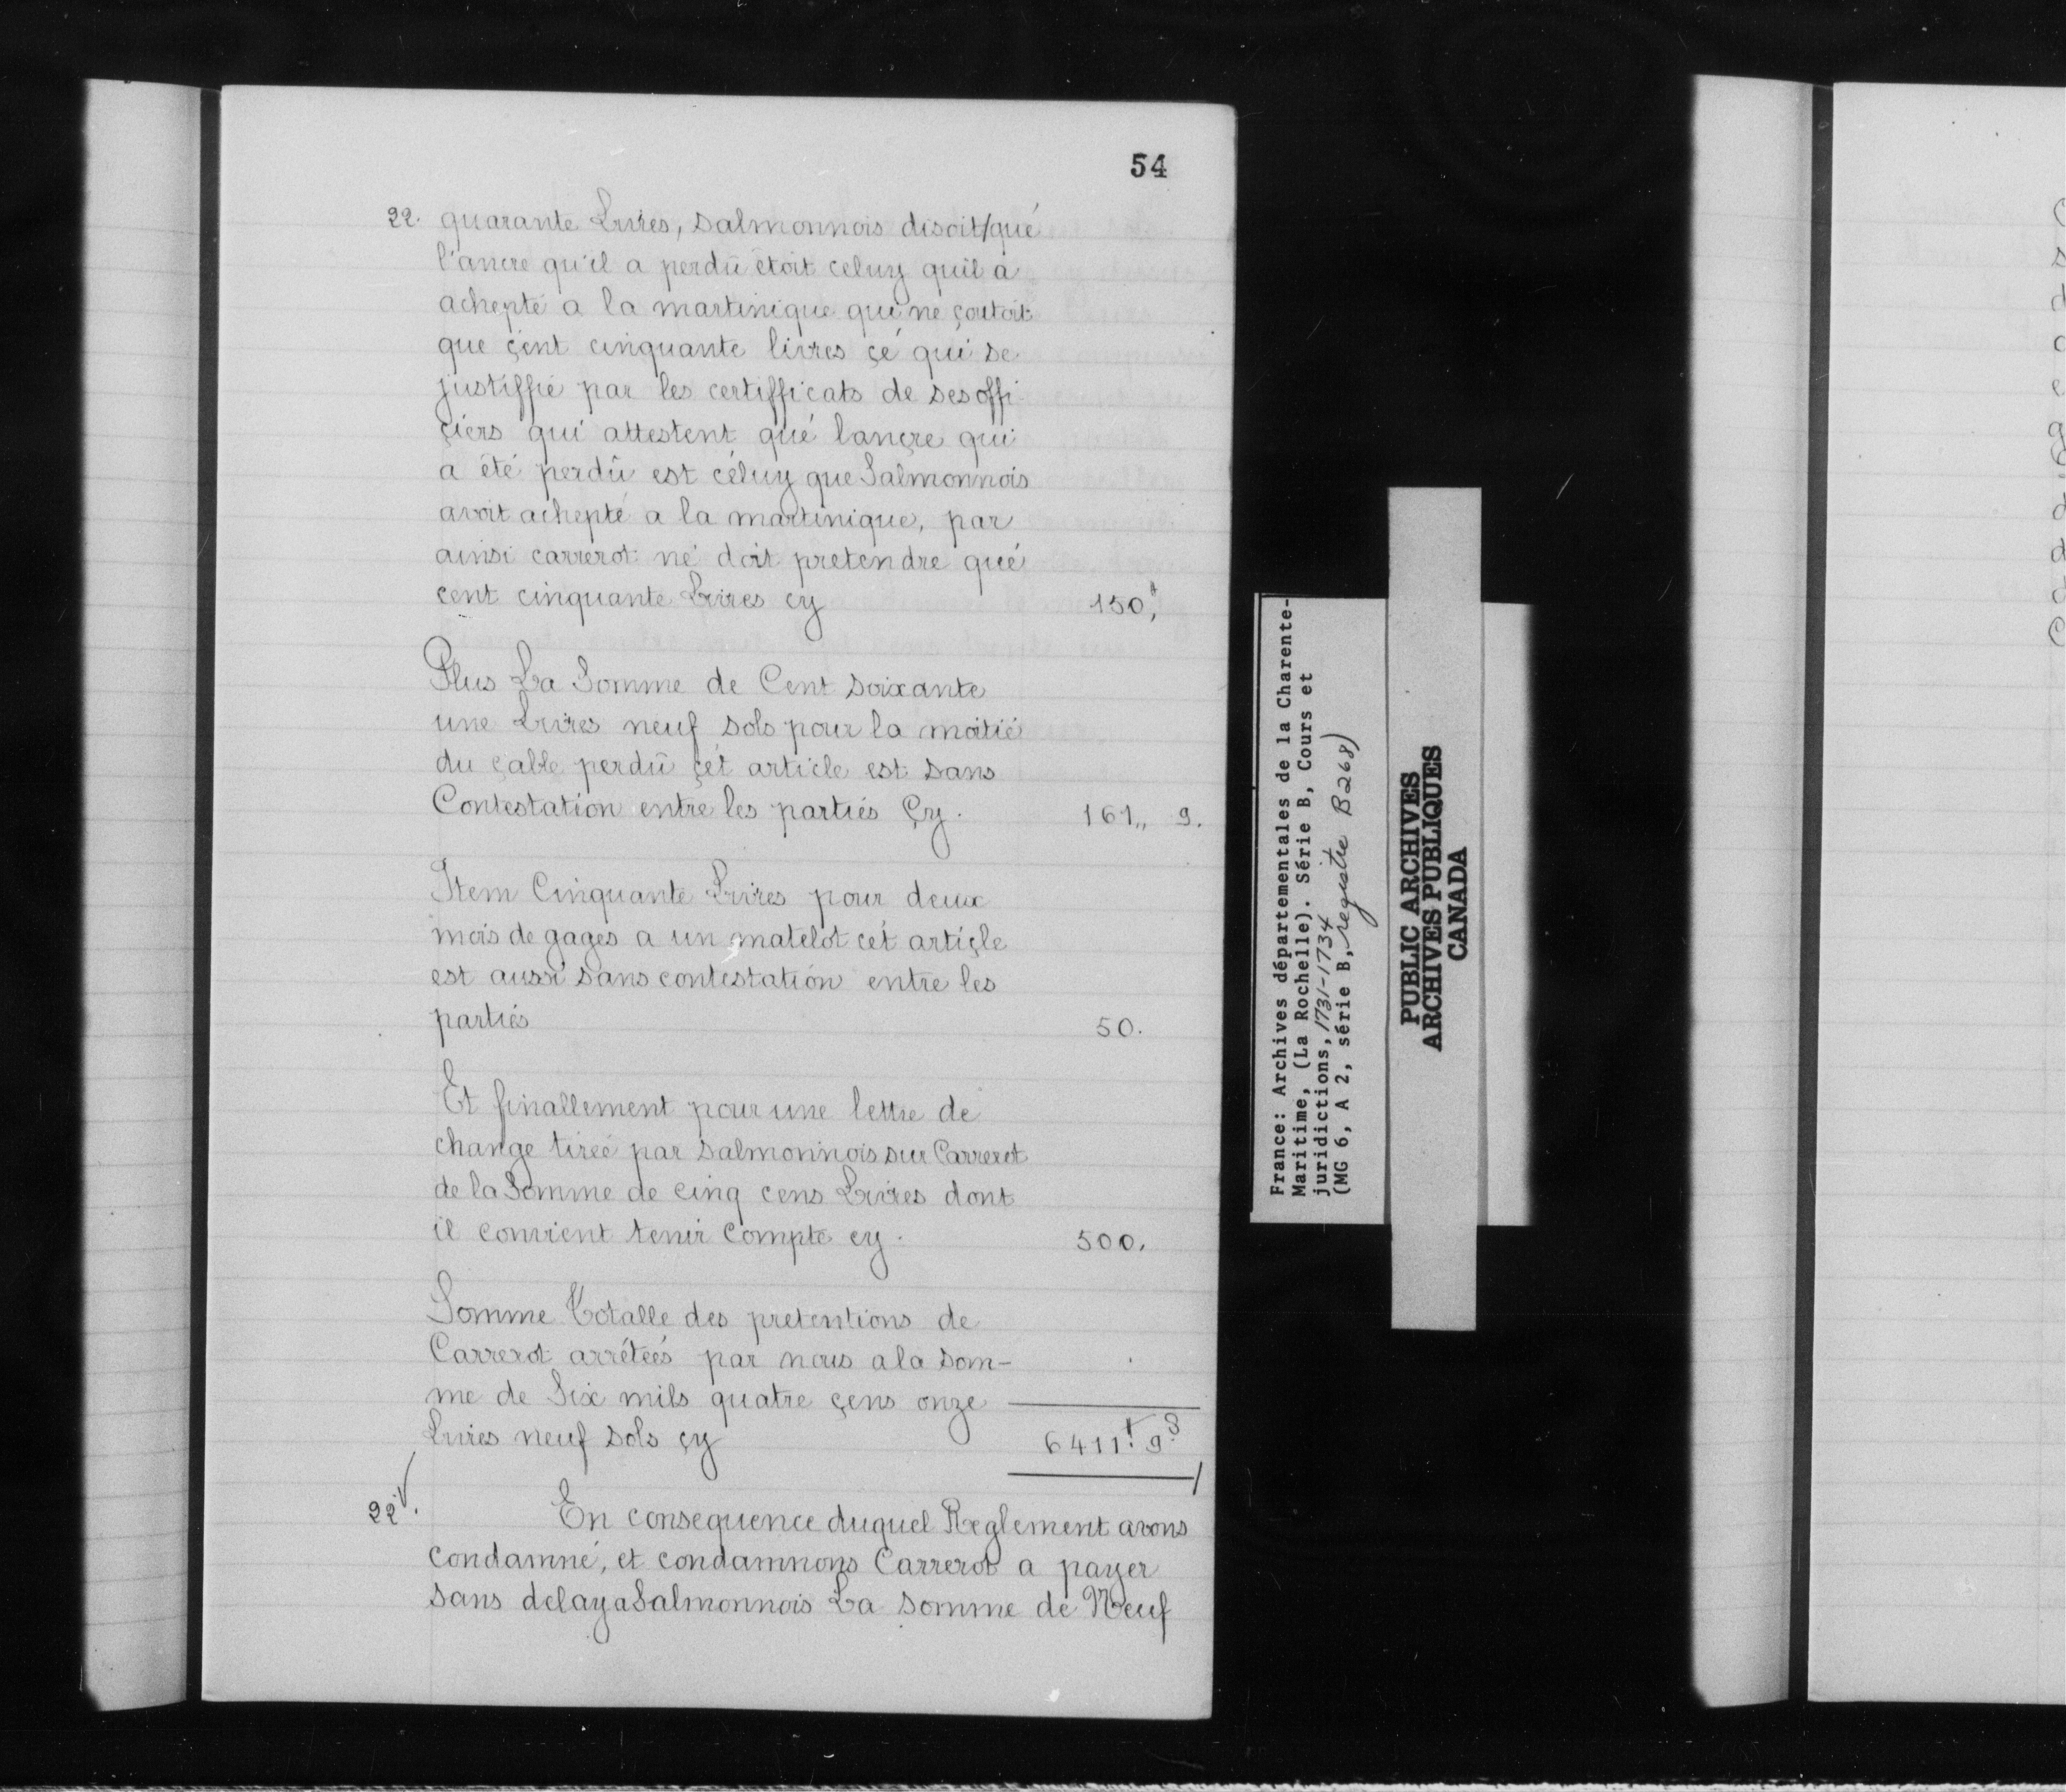 54
22. quarante Livres, Salmonnois disoit/qué
l'ancre qu'il a perdû étoit celuy quil à
achepté a la martinique qui ne çoutoit
que çent cinquante livres çé qui se
justiffié par les certifficats de ses offi
çiers qui attestent qué lançre qui
a été perdû est céluy que Salmonnois
avoit achepté a la martinique, par
ainsi carrerot né doit pretendre qué
cent cinquante Livres cy 150,
Plus La Somme de Cent soixante
une Livres neuf sols pour la moitié
du çable perdû çét article est sans
Contestation entre les partiés Çy. 161,, 9.
Item Cinquante Livres pour deux
mois de gages a un matelot cét artiçle
est aussi sans contestation entre les
partiés 50.
Et finallement pour une lettre de
change tireé par Salmonnois sur Carrerot
de la Somme de cinq cens Livres dont
il convient tenir compte cy. 500.
Somme Totalle des pretentions de
Carrerot arrétéés par nous a la som-
me de Six mils quatre çens onze
Livres neuf sols çy 6411.ᵗ 9.ˢ
22v. En consequence duquel Reglement avons
condamné, et condamnons Carrerot a payer
sans delay a Salmonnois La somme de Neuf
France: Archives départementales de la Charente-
Maritime, (La Rochelle). Série B, Cours et
juridictions, 1731-1734
(MG 6, A 2, série B, registre B268)
PUBLIC ARCHIVES
ARCHIVES PUBLIQUES
CANADA